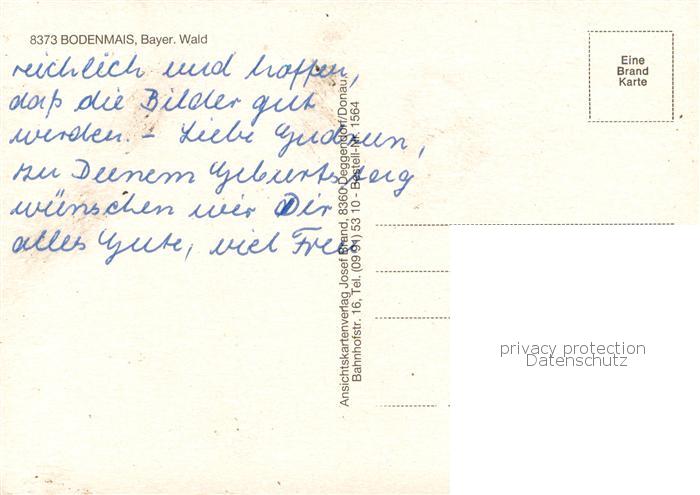 8373 BODENMAIS, Bayer. Wald
reichlich und hoffen,
daß die Bilder gut
werden. – Liebe Gudrun,
zu Deinem Geburtstag
wünschen wir Dir
alles Gute, viel
Ansichtskartenverlag Josef Brand, 8360 Deggendorf/Donau,
Bahnhofstr. 16, Tel. (09 91) 53 10 - Bestell-Nr. 1564
Eine
Brand
Karte
privacy protection
Datenschutz